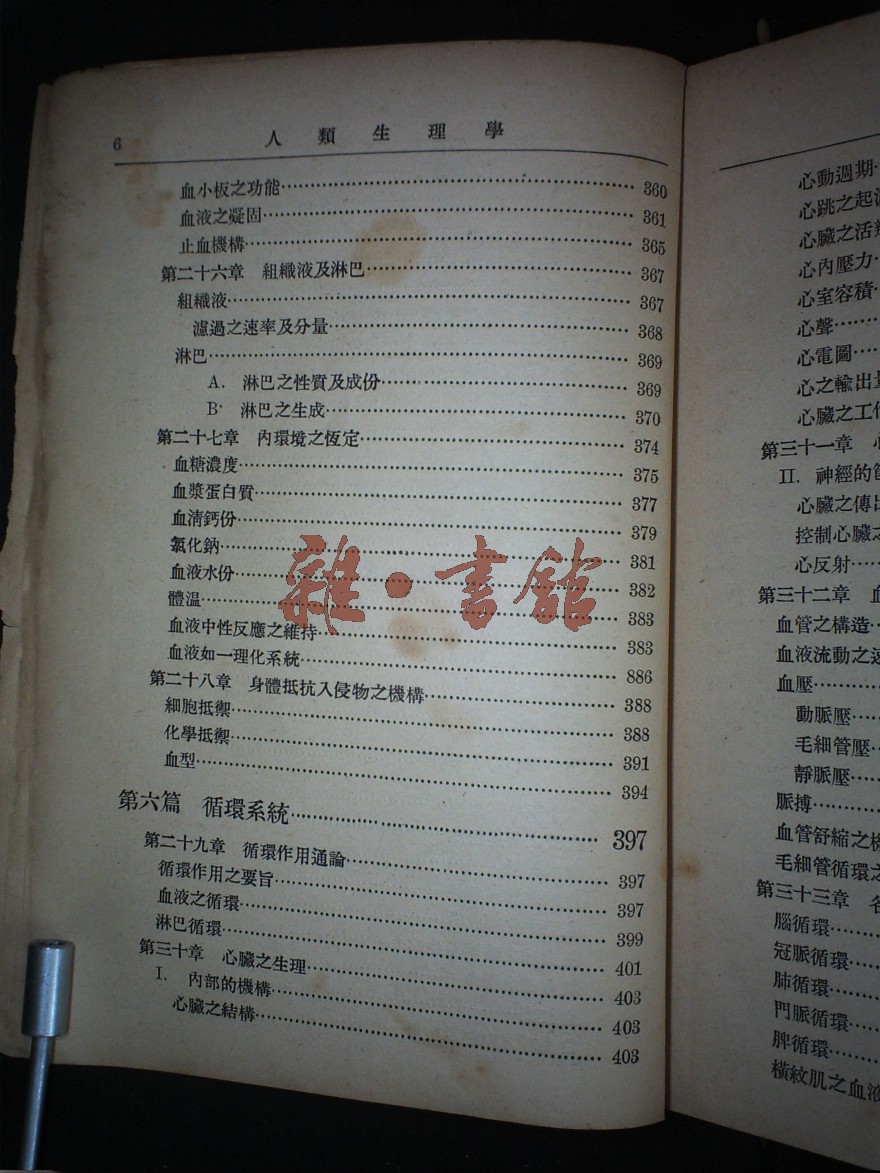 6 人類生理學
血小板之功能 360
血液之凝固 361
止血機構 365
第二十六章 組織液及淋巴 367
組織液 367
濾過之速率及分量 368
淋巴 369
A. 淋巴之性質及成份 369
B. 淋巴之生成 370
第二十七章 內環境之恆定 374
血糖濃度 375
血漿蛋白質 377
血清鈣份 379
氯化鈉 381
血液水份 382
體溫 383
血液中性反應之維持 383
血液如一理化系統 886
第二十八章 身體抵抗入侵物之機構 388
細胞抵禦 388
化學抵禦 391
血型 394
第六篇 循環系統 397
第二十九章 循環作用通論 397
循環作用之要旨 397
血液之循環 399
淋巴循環 401
第三十章 心臟之生理 403
I. 內部的機構 403
心臟之結構 403
雜·書館
心動週期
心跳之起
心臟之活
心內壓力
心室容積
心聲
心電圖
心之輸出
心臟之工
第三十一章 心
II. 神經的
心臟之傳
控制心臟
心反射
第三十二章 血
血管之構造
血液流動之
血壓
動脈壓
毛細管壓
靜脈壓
脈搏
血管舒縮之
毛細管循環之
第三十三章 各
腦循環
冠脈循環
肺循環
門脈循環
脾循環
橫紋肌之血液